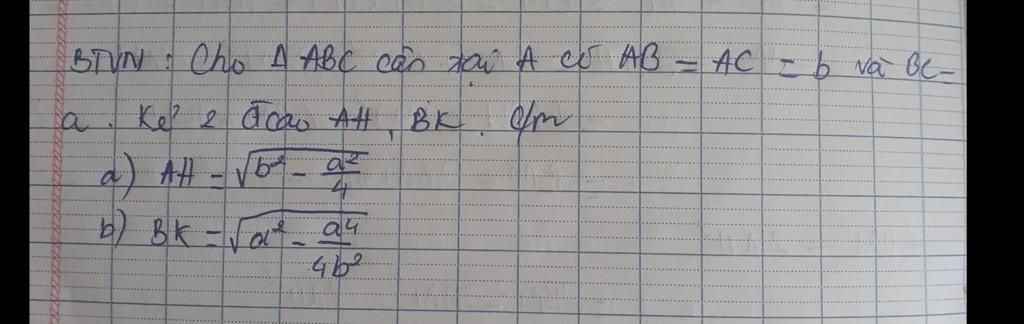 BTVN : Cho Δ ABC cân tại A có AB = AC = b và BC =
a . Kẻ 2 đ cao AH , BK . C/m
a) AH = √(b² - a²/4)
b) BK = √(a² - a⁴/4b²)